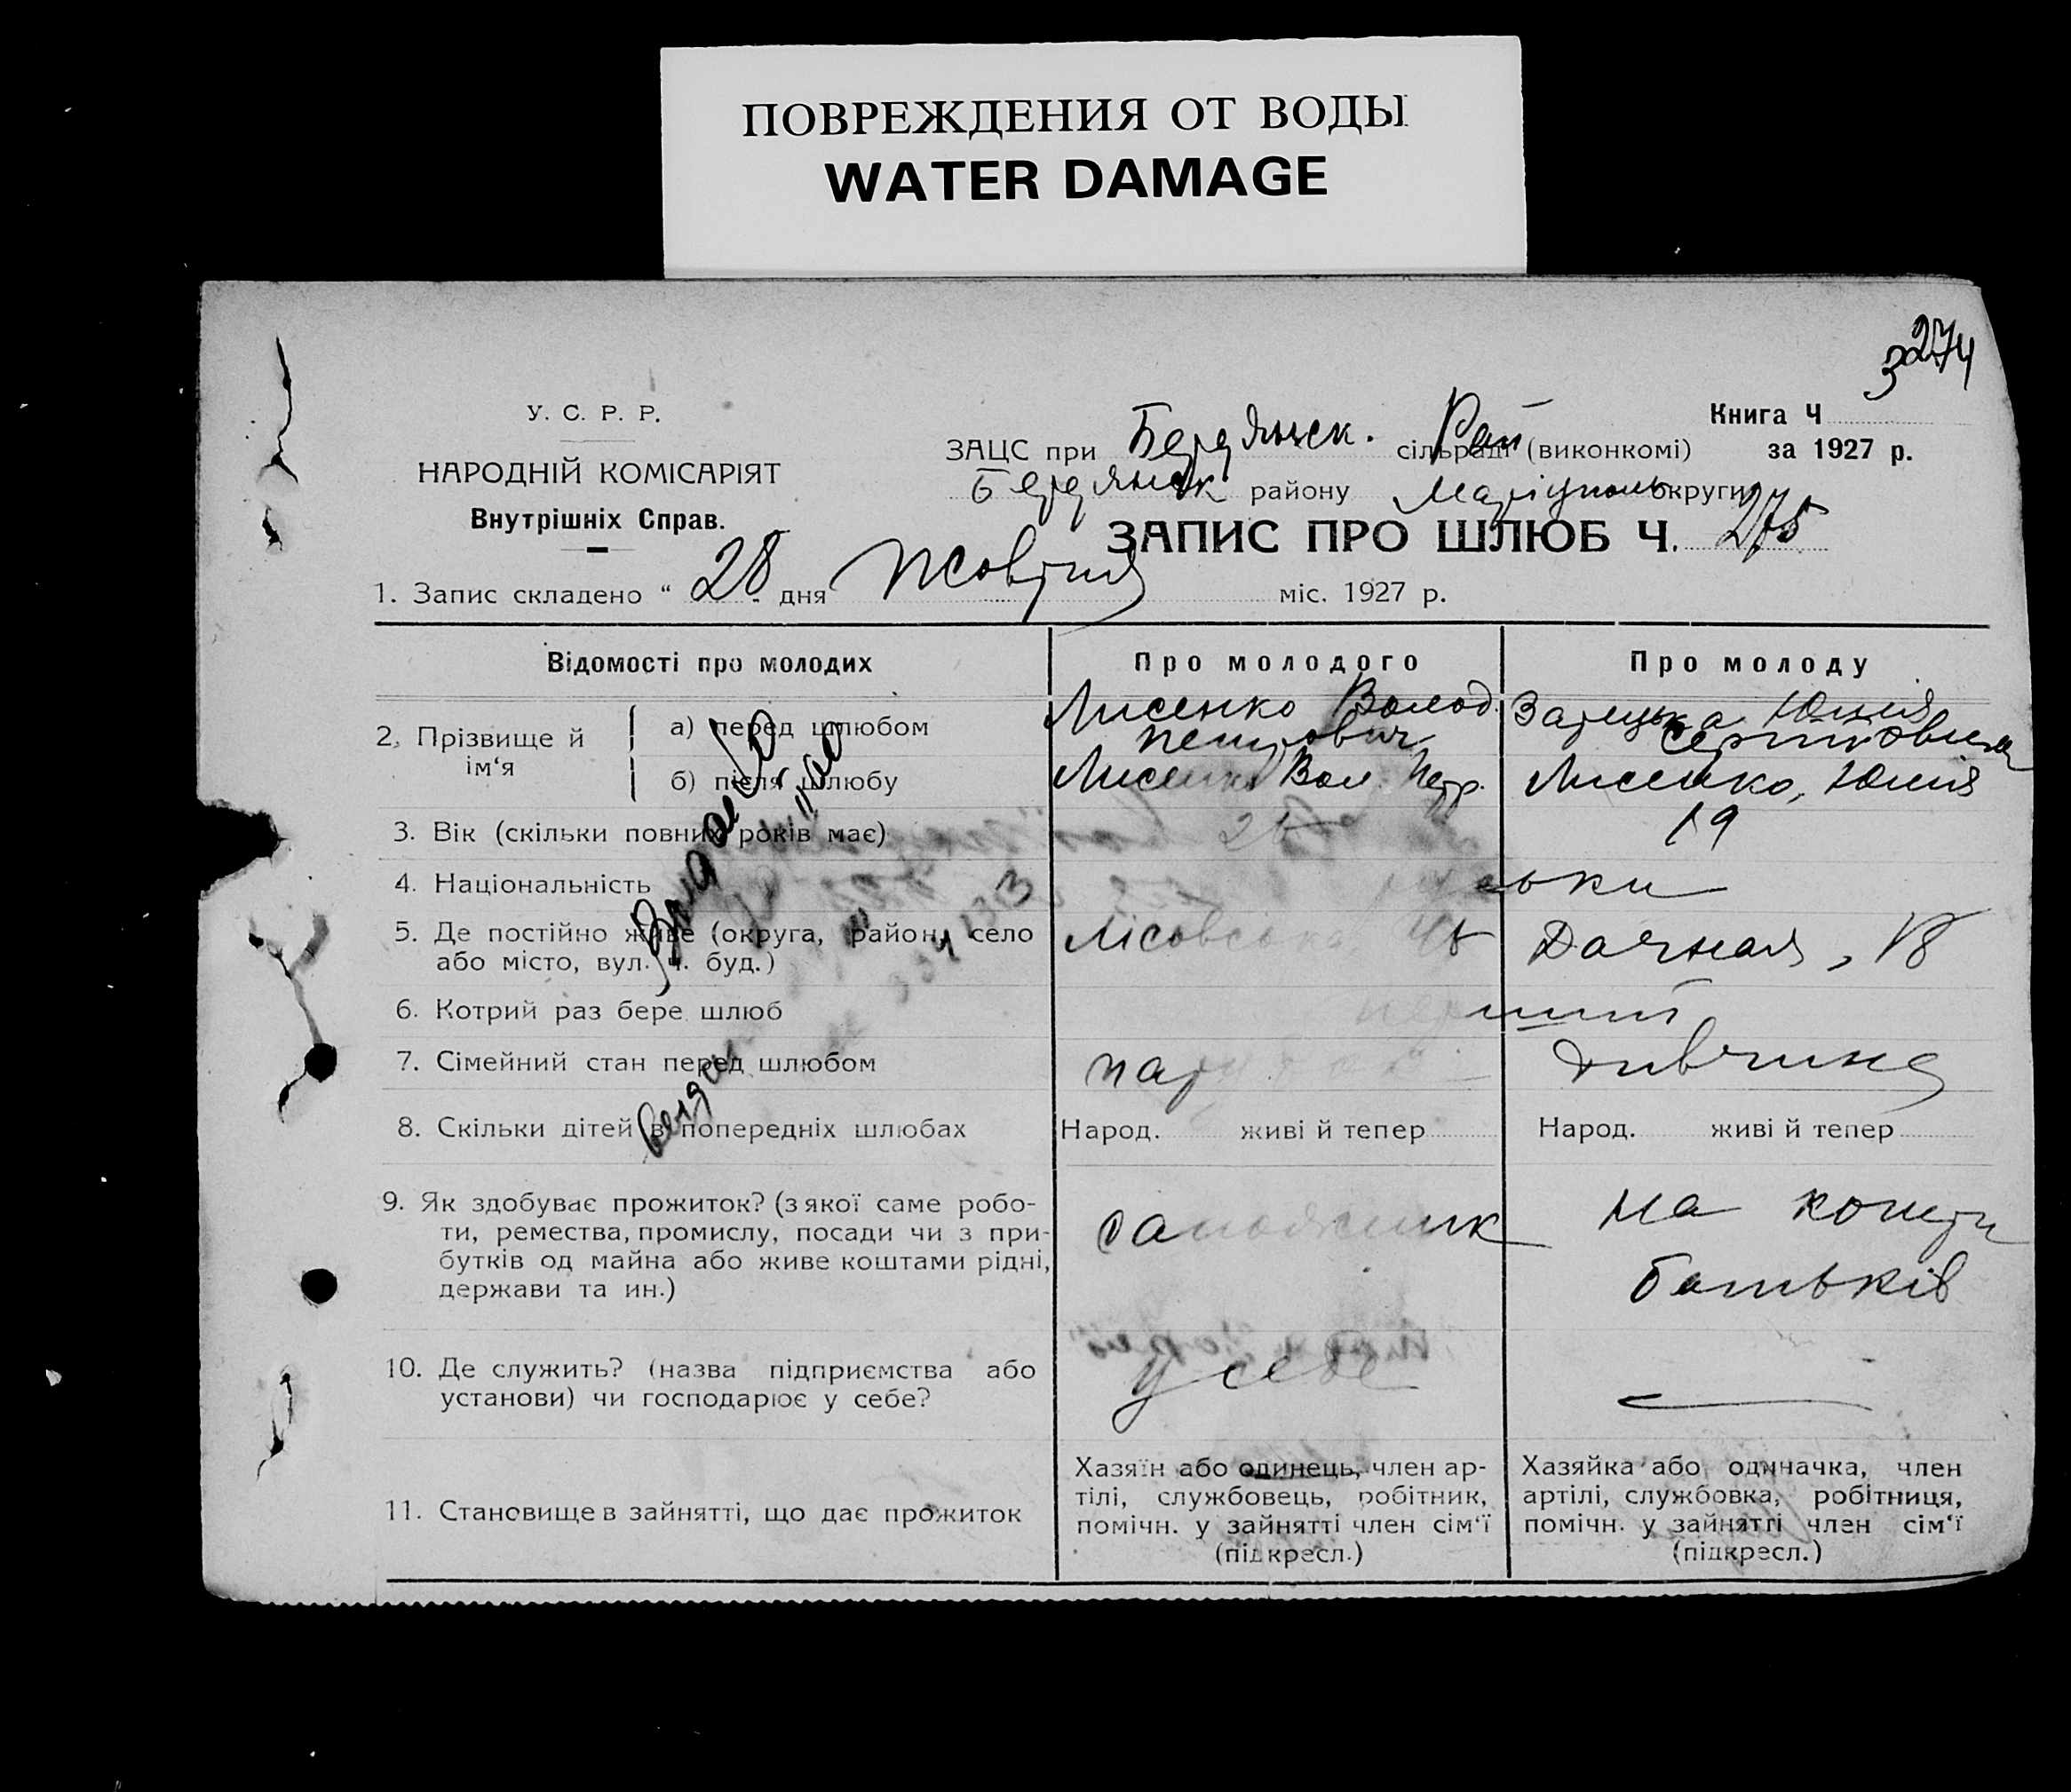 ПОВРЕЖДЕНИЯ ОТ ВОДЫ
WATER DAMAGE
274
У. С. Р. Р.
НАРОДНІЙ КОМІСАРІЯТ
Внутрішніх Справ.
Книга Ч
ЗАЦС при Бердянск. Рай сільраді (виконкомі) за 1927 р.
Бердянск району Маріуполь округи
ЗАПИС ПРО ШЛЮБ Ч. 275
1. Запис складено “ 28 дня Жовтня міс. 1927 р.
Відомості про молодих Про молодого Про молоду
2. Прізвище й ім‘я
а) перед шлюбом Лисенко Волод. Петрович Юлія
б) після шлюбу Лисенко Вол. Петр. Лисенко, Юлія
3. Вік (скільки повних років має) 19
4. Національність
5. Де постійно живе (округа, район, село
або місто, вул. ч. буд.) Дачная, 18
6. Котрий раз бере шлюб перший
7. Сімейний стан перед шлюбом парубок дивчина
8. Скільки дітей в попередніх шлюбах Народ. живі й тепер Народ. живі й тепер
9. Як здобуває прожиток? (з якої саме робо-
ти, ремества, промислу, посади чи з при-
бутків од майна або живе коштами рідні,
держави та ин.)
сапожник
на кошти
батьків
10. Де служить? (назва підприємства або
установи) чи господарює у себе?
у себе
11. Становище в зайнятті, що дає прожиток
Хазяїн або одинець, член ар-
тілі, службовець, робітник,
помічн. у зайнятті член сім‘ї
(підкресл.)
Хазяйка або одиначка, член
артілі, службовка, робітниця,
помічн. у зайнятті член сім‘ї
(підкресл.)